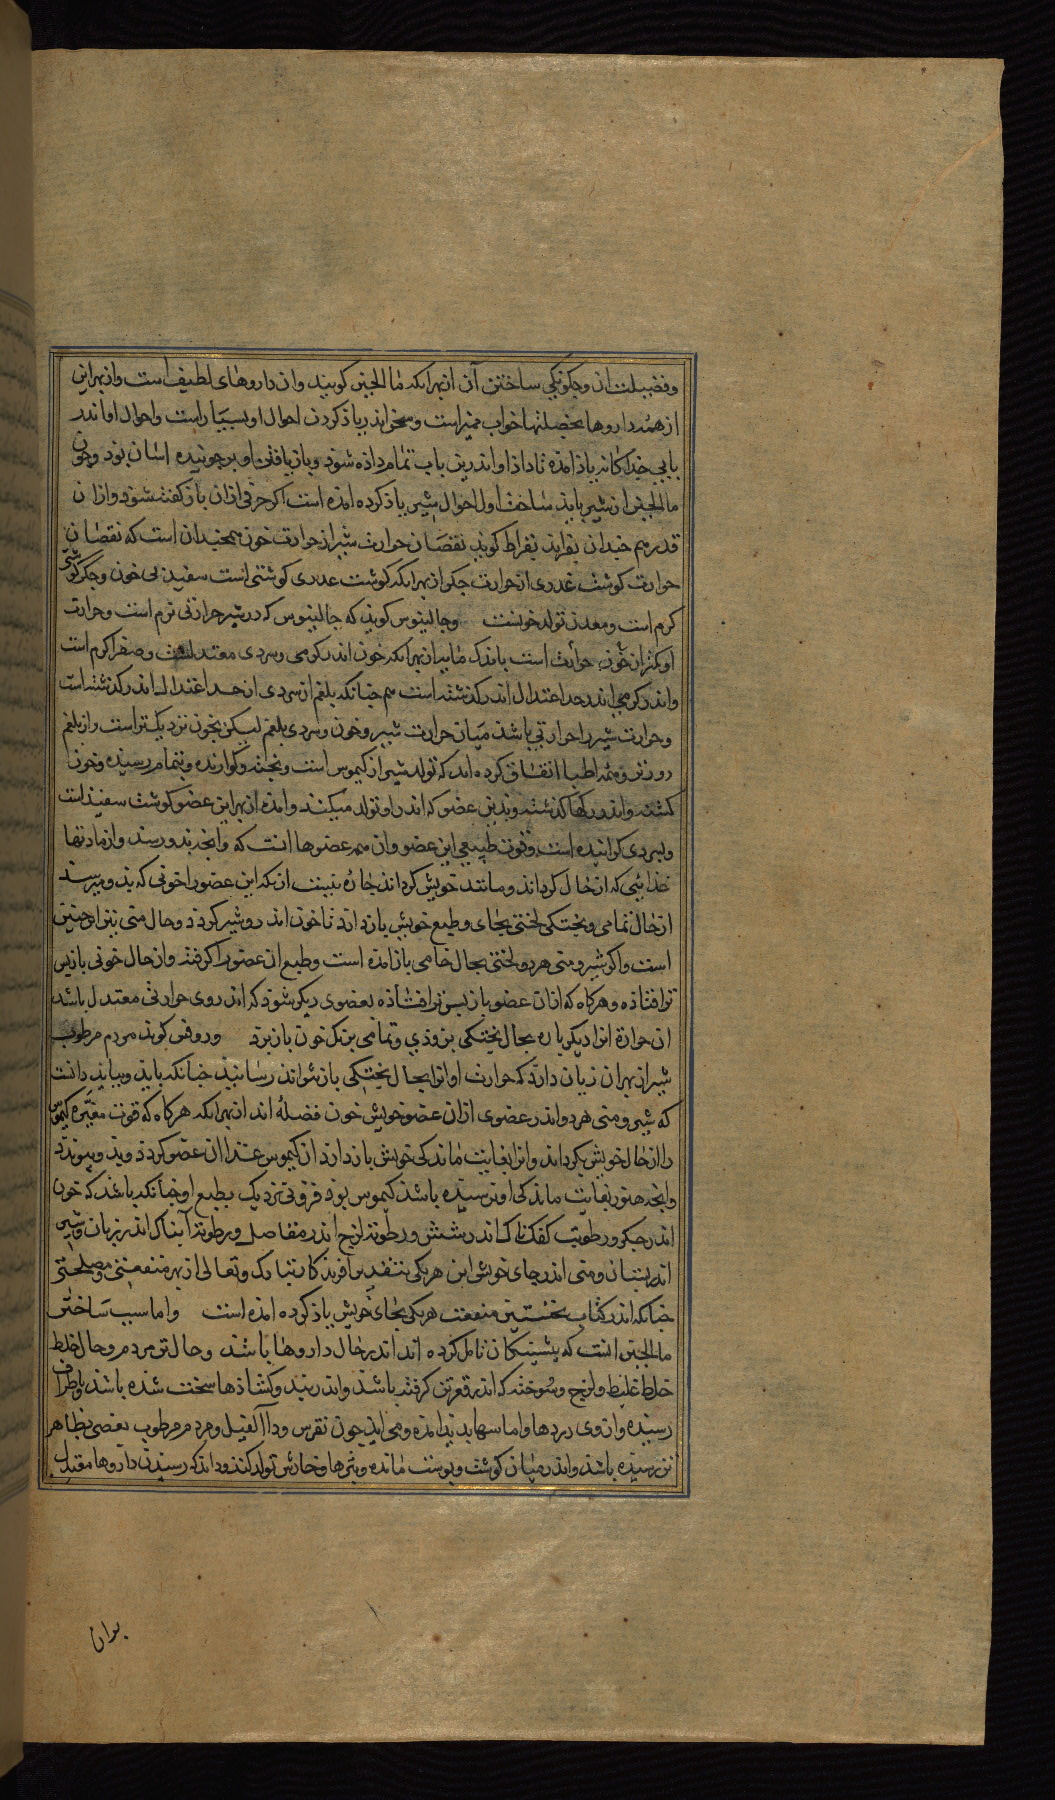 و فضیلت ان و چکونکی ساختن آن ازبهر انکه ما الجبن کویند وان داروهای لطیف است وازبهر این
از همه داروها بخصلتها خواب ممیز است و سخن اندر یاذ کردن احوال او بسیار است و احوال او اندر
بابی جداکانه یاذ امذه تا داذ او اندرین باب تمام داذه شوذ و بازیافتن او بر جوینده اسان بوذ و چون
ما الجبن از شیر بایذ ساخت اول احوال شیر یاذ کرده امذه است اکر حرفی ازان باز کفته شوذ و ازان
قدر هم چندان بفزایذ بقراط کویذ نقصان حرارت شیر از حرارت خون همچندان است که نقصان
حرارت کوشت غددی از حرارت جکر ازبهر انکه کوشت غددی کوشتی است سفیذ بی خون و جکر کوشتی
کرم است و معدن تولد خونست و جالینوس کویذ که در شیر حرارتی نرم است و حرارت
او کمتر از خون حرارت است باندک مایه ازبهر انکه خون اندر کرمی و سردی معتدلست و صفرا کرم است
و اندر کرمی از حد اعتدال اندر کذشته است هم چنانکه بلغم از سردی از حد اعتدال اندر کذشته است
و حرارت شیر را حرارتی باشذ میان حرارت شیر و خون و سردی بلغم لیکن بخون نزدیک تر است و از بلغم
دورتر و همه اطبا اتفاق کرده اند که تولد شیر از کیموس است و پخته و کوارنده و بتمام رسیذه و خون
کشته و اندر رکها کذشته و بدین عضو که اندر او تولد میکند و امذه ازبهر این عضو کوشت سفیذ است
و بسردی کراینده است و قوت طبیعی این عضو وان همه عضوها انست که و انچه بذو رسد و از مادتها
غذائی که از حال کرداند و مانند خویش کرداند چاره نیست ازانکه این عضو را خونی که بذو میرسد
از حال تمامی و پختکی لختی بجای و طبع خویش بازدارد تا خون اندر و شیر کردذ و حال منی نیز اوچنین
است و اکر شیر و منی هر دو لختی بحال خامی باز امذه است و طبع ان عضو را کرفته و از حال خونی بازپس
تر افتاذه و هرکاه که ازان عضو بازپس تر افتاذه بعضوی دیکر شوذ که اندر وی حرارتی معتدل باشذ
ان حرارة انرا دیکرباره بحال پختکی بزوذی و تمامی برنک خون بازبرد و روفس کویذ مردم مرطوب
شیر ازبهر ان زیان دارد که حرارت او انرا بحال پختکی باز نتواند رسانیذ چنانکه بایذ و ببایذ دانست
که شیر و منی هر دو اندر عضوی ازان عضو خویش خون فضله اند ازبهر انکه هرکاه که قوت مغیره کیموس
را از حال خویش بکرداند و انرا بغایت مانندکی خویش بازدارد ان کیموس غذا ان عضو کردذ و بذو پیوندد
و انچه هنوز بغایت مانندکی او نرسیذه باشذ کیموس بوذ فزونی نزدیک بطبع او چنانکه باشذ که خون
اندر جکر و رطوبت کفکناک اندر شش و رطوبة لزج اندر مفاصل و رطوبة ابناک اندر زبان و شیر
اندر پستان و منی اندر جای خویش این هریکی بتقدیر افریذکار تبارک و تعالی ازبهر منفعتی و مصلحتی
چنانکه اندر کتاب نخستین منفعت هریکی بجای خویش یاذ کرده امذه است و اما سبب ساختن
ما الجبن انست که پیشینکان تامل کرده اند اندر حال داروها باشذ و حال تن مردم و حال خلط
خلط غلیظ و لزج و سوخته که اندر قعر تن کرفته باشذ و اندر بند و کشاذها سخت شذه باشذ و باطراف
رسیذه و ازوی دردها و اماسها پدید امذه و می ایذ چون نقرس و داالفیل و مردم مرطوب بعضی بظاهر
تن رسیذه باشذ و اندر میان کوشت و پوست مانده و بثرها و خارش تولد کند و دانند که رسیذن داروها مقبل
بوان